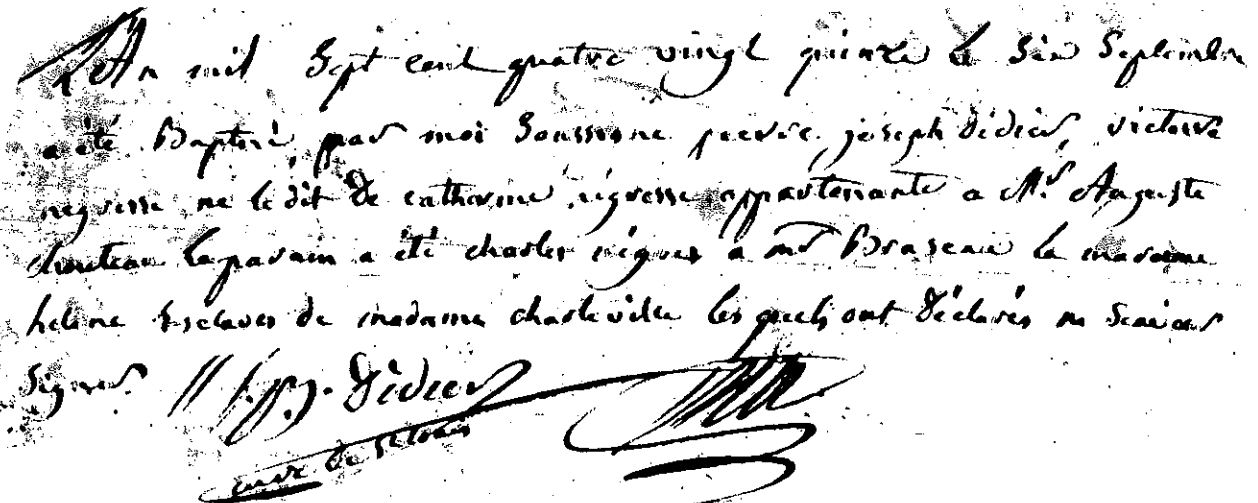 L'An mil Sept cent quatre vingt quinze le Six Septembre
a été Baptisé, par moi Soussigne pierre joseph didier, victoire
negresse ne le dit de catharine négresse appartenante a Mr. Auguste
chouteau le parain a été charles négres a mr Brazeau la maraine
helene Esclaves de madame charleville les quels ont déclarés ne Scavoir
Signer // f. p. j. didier
curé de St Louis